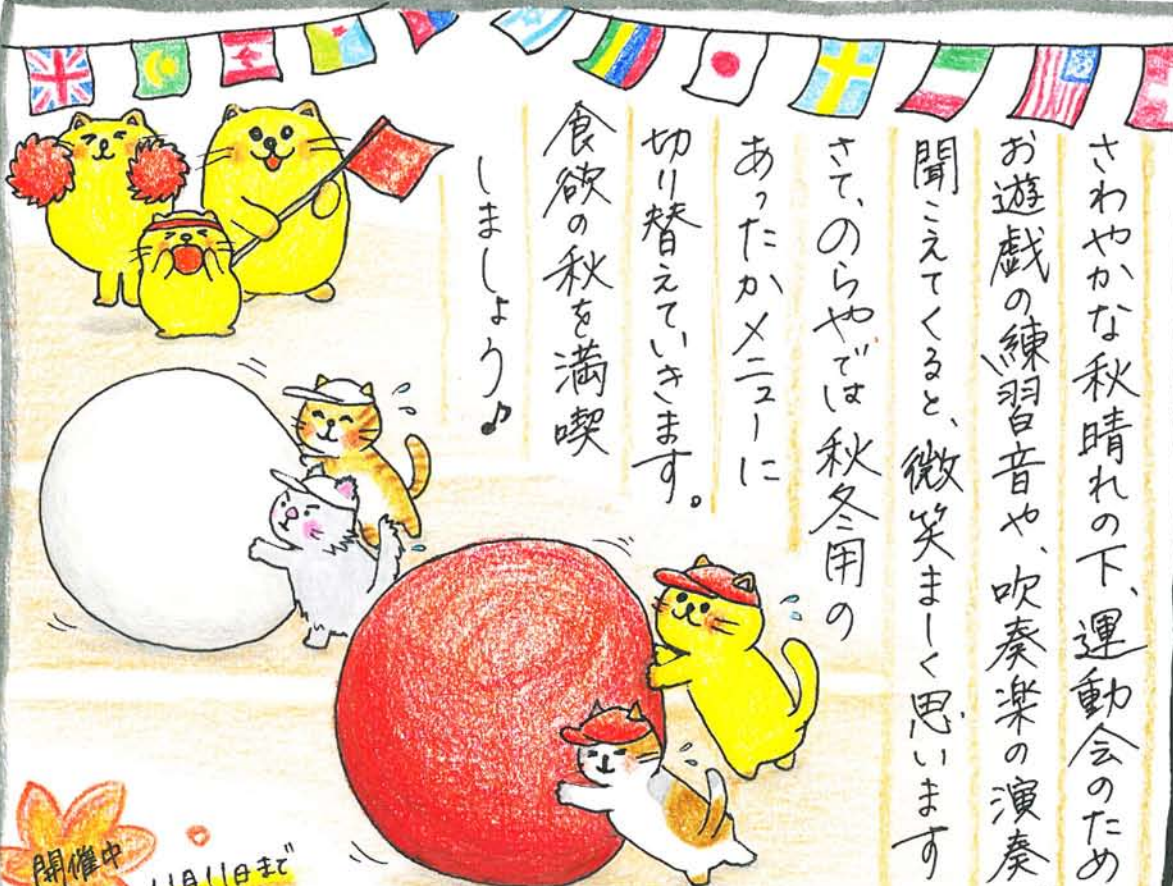 さわやかな秋晴れの下、運動会のため
お遊戯の練習音や、吹奏楽の演奏
聞こえてくると、微笑ましく思います
さて、のらやでは秋冬用の
あったかメニューに
切り替えていきます。
食欲の秋を満喫
しましょう♪
開催中
11月11日まで